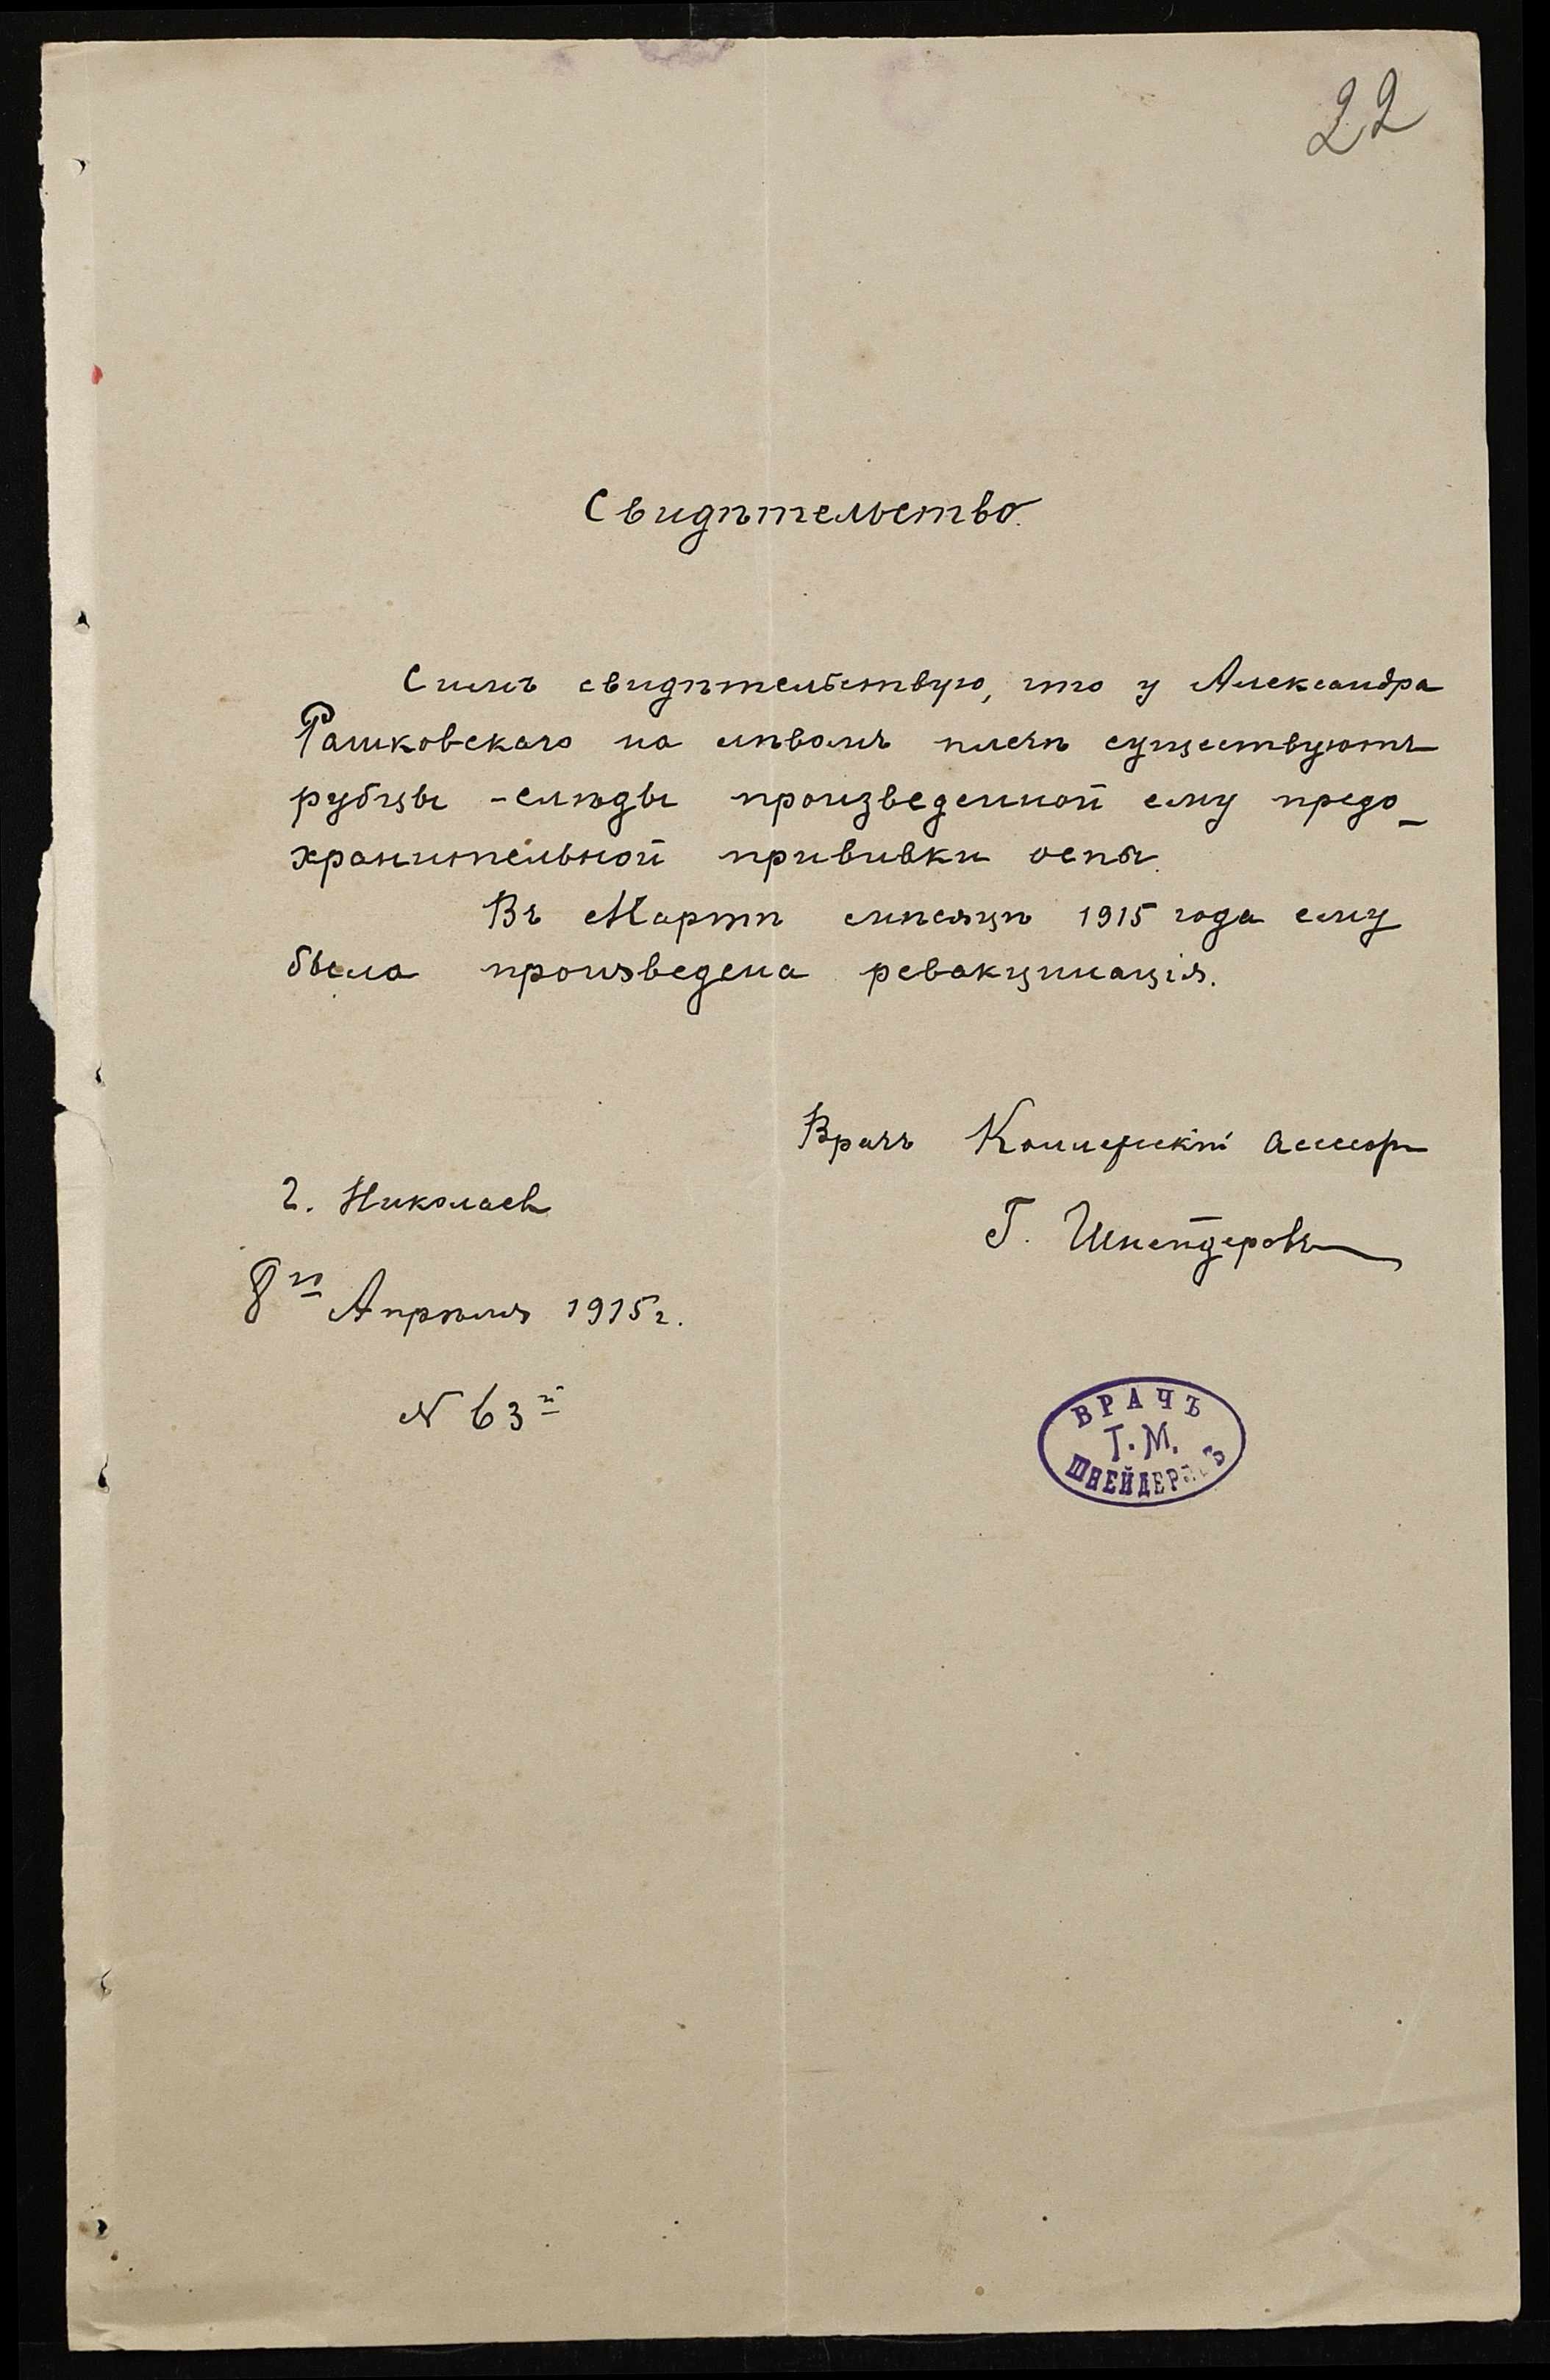 22
Свидѣтельство.
Симъ свидѣтельствую, что у Александра
Рашковскаго на лѣвомъ плечѣ существуютъ
рубцы - слѣды произведенной ему предо-
хранительной прививки оспы.
Въ Мартѣ мѣсяцѣ 1915 года ему
была произведена ревакцинація.
Врачъ Коллежскій Ассесоръ
Г. Шнейдеровъ
г. Николаевъ
8го Апрѣля 1915 г.
N 63й
ВРАЧЪ
Г. М.
ШНЕЙДЕРОВЪ